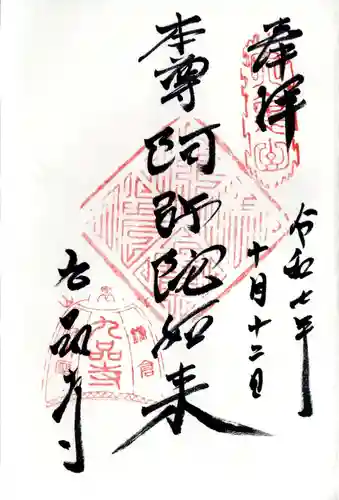 奉拝
令和七年
十月十二日
本尊
阿弥陀如来
九品寺
九品寺
鎌倉